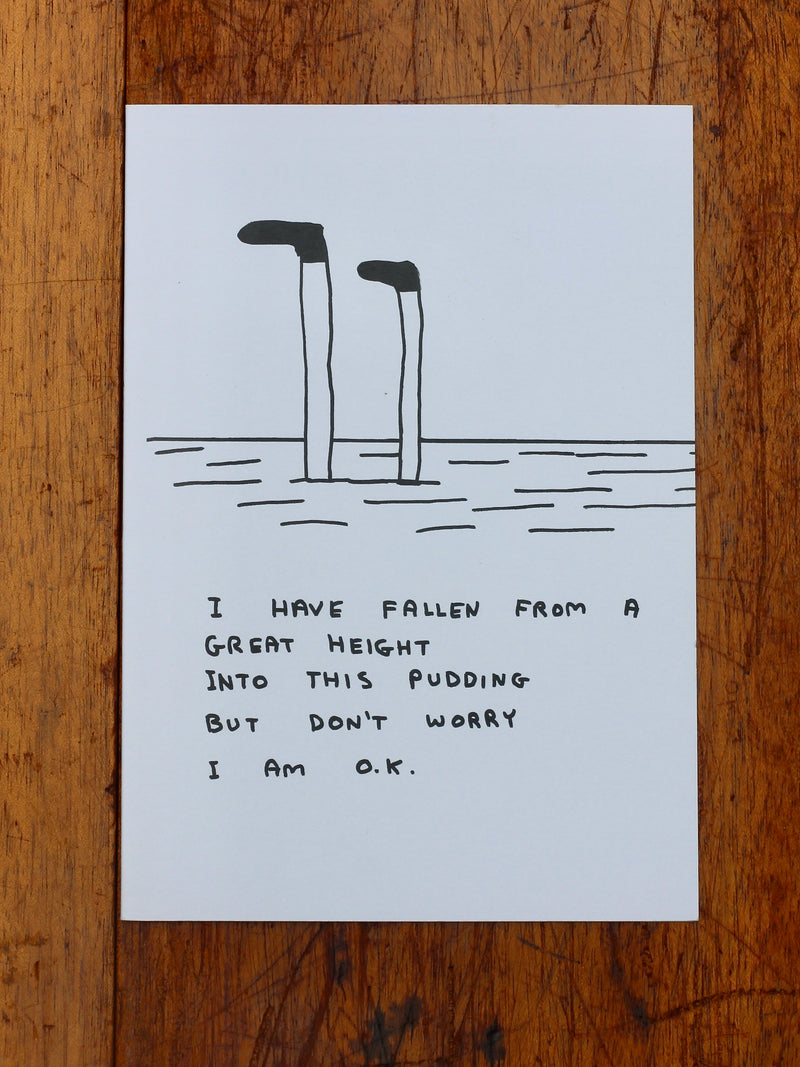 I HAVE FALLEN FROM A
GREAT HEIGHT
INTO THIS PUDDING
BUT DON'T WORRY
I AM O.K.